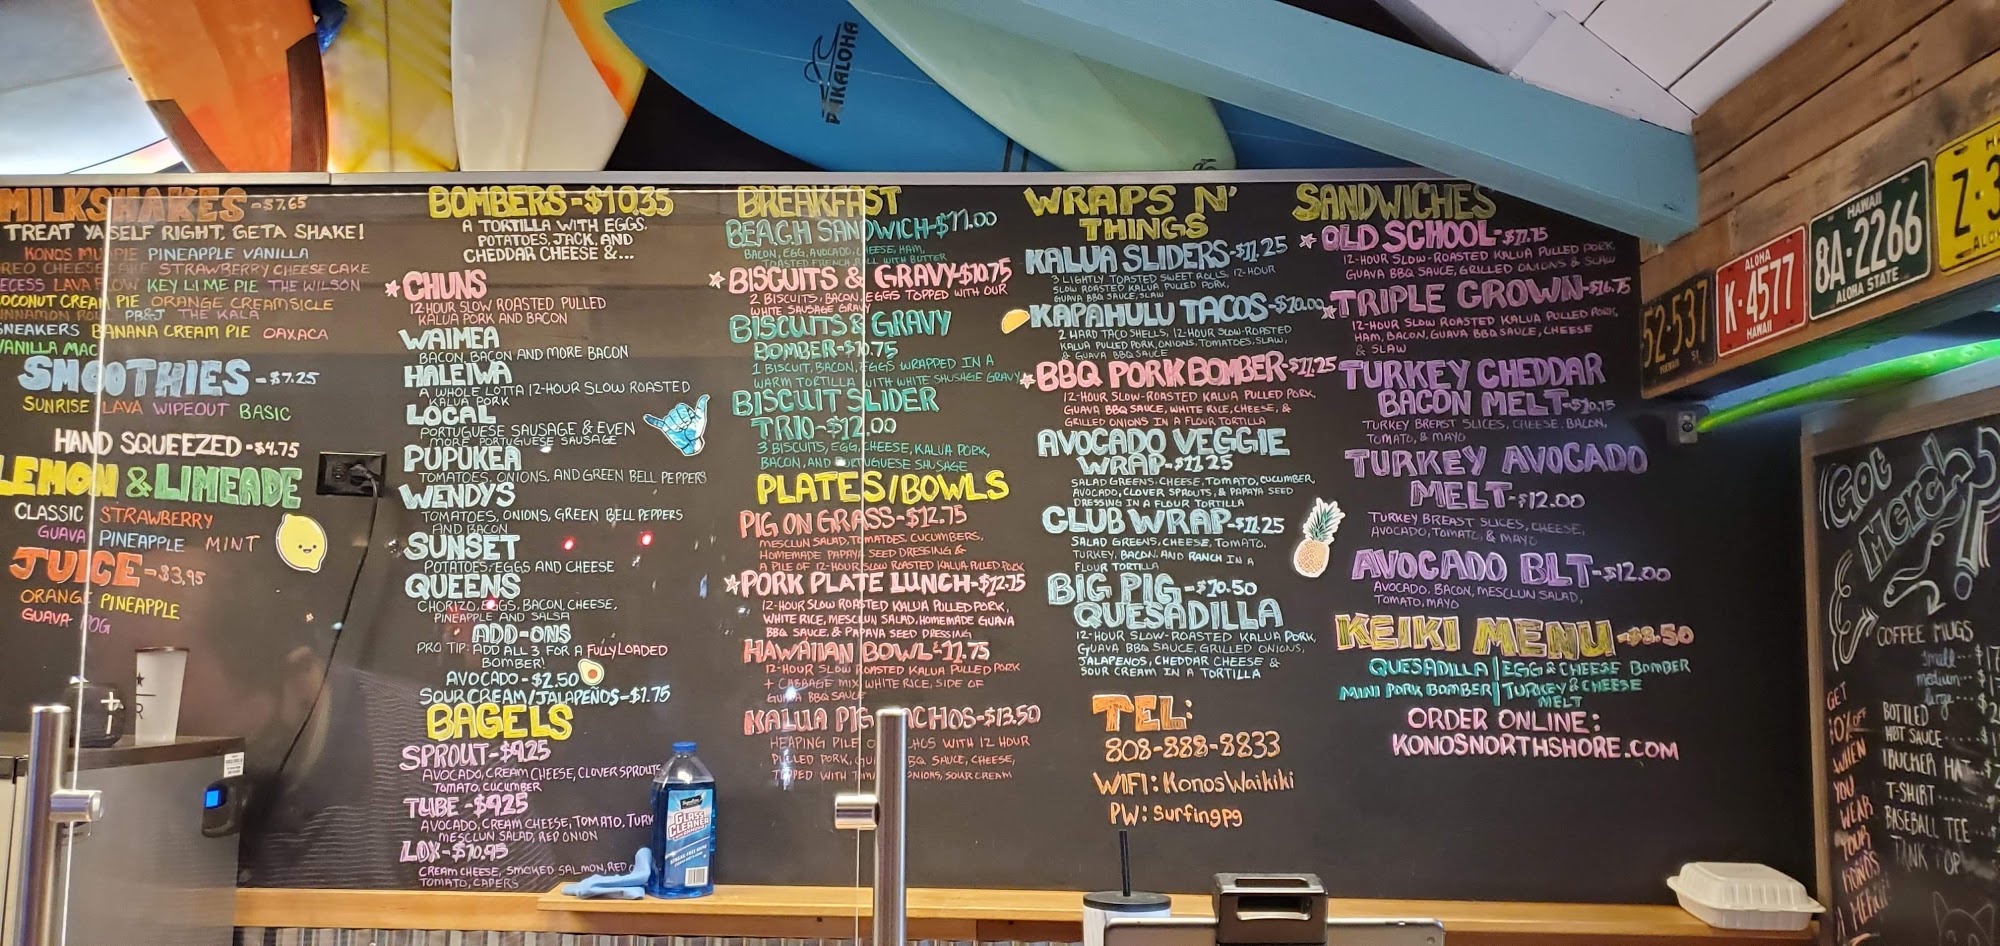 PAIKALOHA
MILKSHAKES -$7.65
TREAT YASELF RIGHT, GETA SHAKE!
KONOS MUDPIE PINEAPPLE VANILLA
OREO CHEESECAKE STRAWBERRY CHEESECAKE
LAVA FLOW KEY LIME PIE THE WILSON
COCONUT CREAM PIE ORANGE CREAMSICLE
CINNAMON ROLL PB&J THE KALA
SNEAKERS BANANA CREAM PIE OAXACA
VANILLA MAC
SMOOTHIES -$7.25
SUNRISE LAVA WIPEOUT BASIC
HAND SQUEEZED -$4.75
LEMON & LIMEADE
CLASSIC STRAWBERRY
GUAVA PINEAPPLE MINT
JUICE -$3.95
ORANGE PINEAPPLE
GUAVA POG
BOMBERS -$10.35
A TORTILLA WITH EGGS,
POTATOES, JACK, AND
CHEDDAR CHEESE &...
CHUNS
12 HOUR SLOW ROASTED PULLED
KALUA PORK AND BACON
WAIMEA
BACON, BACON AND MORE BACON
HALEIWA
A WHOLE LOTTA 12-HOUR SLOW ROASTED
KALUA PORK
LOCAL
PORTUGUESE SAUSAGE & EVEN
MORE PORTUGUESE SAUSAGE
PUPUKEA
TOMATOES, ONIONS, AND GREEN BELL PEPPERS
WENDY'S
TOMATOES, ONIONS, GREEN BELL PEPPERS
AND BACON
SUNSET
POTATOES, EGGS AND CHEESE
QUEENS
CHORIZO, EGGS, BACON, CHEESE,
PINEAPPLE AND SALSA
ADD-ONS
PRO TIP: ADD ALL 3 FOR A FULLY LOADED
BOMBER!
AVOCADO -$2.50
SOUR CREAM/JALAPEÑOS -$1.75
BAGELS
SPROUT -$9.25
AVOCADO, CREAM CHEESE, CLOVER SPROUTS
TOMATO, CUCUMBER
TUBE -$9.25
AVOCADO, CREAM CHEESE, TOMATO, TURK
MESCLUN SALAD, RED ONION
LOX -$10.95
CREAM CHEESE, SMOKED SALMON, RED
TOMATO, CAPERS
GLASS CLEANER
BREAKFAST
BEACH SANDWICH -$11.00
BACON, EGG, AVOCADO, CHEESE, HAM,
TOASTED FRENCH ROLL WITH BUTTER
BISCUITS & GRAVY -$10.75
2 BISCUITS, BACON, EGGS TOPPED WITH OUR
WHITE SAUSAGE GRAVY
BISCUITS & GRAVY
BOMBER -$10.75
1 BISCUIT, BACON, EGGS WRAPPED IN A
WARM TORTILLA WITH WHITE SAUSAGE GRAVY
BISCUIT SLIDER
TRIO -$12.00
3 BISCUITS, EGG, CHEESE, KALUA PORK,
BACON, AND PORTUGUESE SAUSAGE
PLATES/BOWLS
PIG ON GRASS -$12.75
MESCLUN SALAD, TOMATOES, CUCUMBERS,
HOMEMADE PAPAYA SEED DRESSING &
A PILE OF 12-HOUR SLOW ROASTED KALUA PULLED PORK
PORK PLATE LUNCH -$12.75
12-HOUR SLOW ROASTED KALUA PULLED PORK,
WHITE RICE, MESCLUN SALAD, HOMEMADE GUAVA
BBQ SAUCE, & PAPAYA SEED DRESSING
HAWAIIAN BOWL -$11.75
12-HOUR SLOW ROASTED KALUA PULLED PORK
+ CABBAGE MIX, WHITE RICE, SIDE OF
GUAVA BBQ SAUCE
KALUA PIG NACHOS -$13.50
HEAPING PILE OF NACHOS WITH 12 HOUR
PULLED PORK, GUAVA BBQ SAUCE, CHEESE,
TOPPED WITH TOMATO, ONIONS, SOUR CREAM
WRAPS N'
THINGS
KALUA SLIDERS -$11.25
3 LIGHTLY TOASTED SWEET ROLLS, 12-HOUR
SLOW ROASTED KALUA PULLED PORK,
GUAVA BBQ SAUCE, SLAW
KAPAHULU TACOS -$10.00
2 HARD TACO SHELLS, 12-HOUR SLOW-ROASTED
KALUA PULLED PORK, ONIONS, TOMATOES, SLAW,
& GUAVA BBQ SAUCE
BBQ PORK BOMBER -$11.25
12-HOUR SLOW-ROASTED KALUA PULLED PORK,
GUAVA BBQ SAUCE, WHITE RICE, CHEESE, &
GRILLED ONIONS IN A FLOUR TORTILLA
AVOCADO VEGGIE
WRAP -$11.25
SALAD GREENS, CHEESE, TOMATO, CUCUMBER,
AVOCADO, CLOVER SPROUTS, & PAPAYA SEED
DRESSING IN A FLOUR TORTILLA
CLUB WRAP -$11.25
SALAD GREENS, CHEESE, TOMATO,
TURKEY, BACON, AND RANCH IN A
FLOUR TORTILLA
BIG PIG -$10.50
QUESADILLA
12-HOUR SLOW-ROASTED KALUA PORK,
GUAVA BBQ SAUCE, GRILLED ONIONS,
JALAPENOS, CHEDDAR CHEESE &
SOUR CREAM IN A TORTILLA
TEL:
808-888-8833
WIFI: KonosWaikiki
PW: surfingpg
SANDWICHES
OLD SCHOOL -$11.75
12-HOUR SLOW-ROASTED KALUA PULLED PORK,
GUAVA BBQ SAUCE, GRILLED ONIONS & SLAW
TRIPLE CROWN -$16.75
12-HOUR SLOW ROASTED KALUA PULLED PORK,
HAM, BACON, GUAVA BBQ SAUCE, CHEESE
& SLAW
TURKEY CHEDDAR
BACON MELT -$10.75
TURKEY BREAST SLICES, CHEESE, BACON,
TOMATO, & MAYO
TURKEY AVOCADO
MELT -$12.00
TURKEY BREAST SLICES, CHEESE,
AVOCADO, TOMATO, & MAYO
AVOCADO BLT -$12.00
AVOCADO, BACON, MESCLUN SALAD,
TOMATO, MAYO
KEIKI MENU -$8.50
QUESADILLA | EGG & CHEESE BOMBER
MINI PORK BOMBER | TURKEY & CHEESE
MELT
ORDER ONLINE:
KONOSNORTHSHORE.COM
52-537
ALOHA
K·4577
HAWAII
HAWAII
8A·2266
ALOHA STATE
Z·3
Got
Merch?
COFFEE MUGS
small
medium
large
BOTTLED
HOT SAUCE
TRUCKER HAT
T-SHIRT
BASEBALL TEE
TANK TOP
GET
10% OFF
WHEN
YOU
WEAR
YOUR
KONOS
MERCH